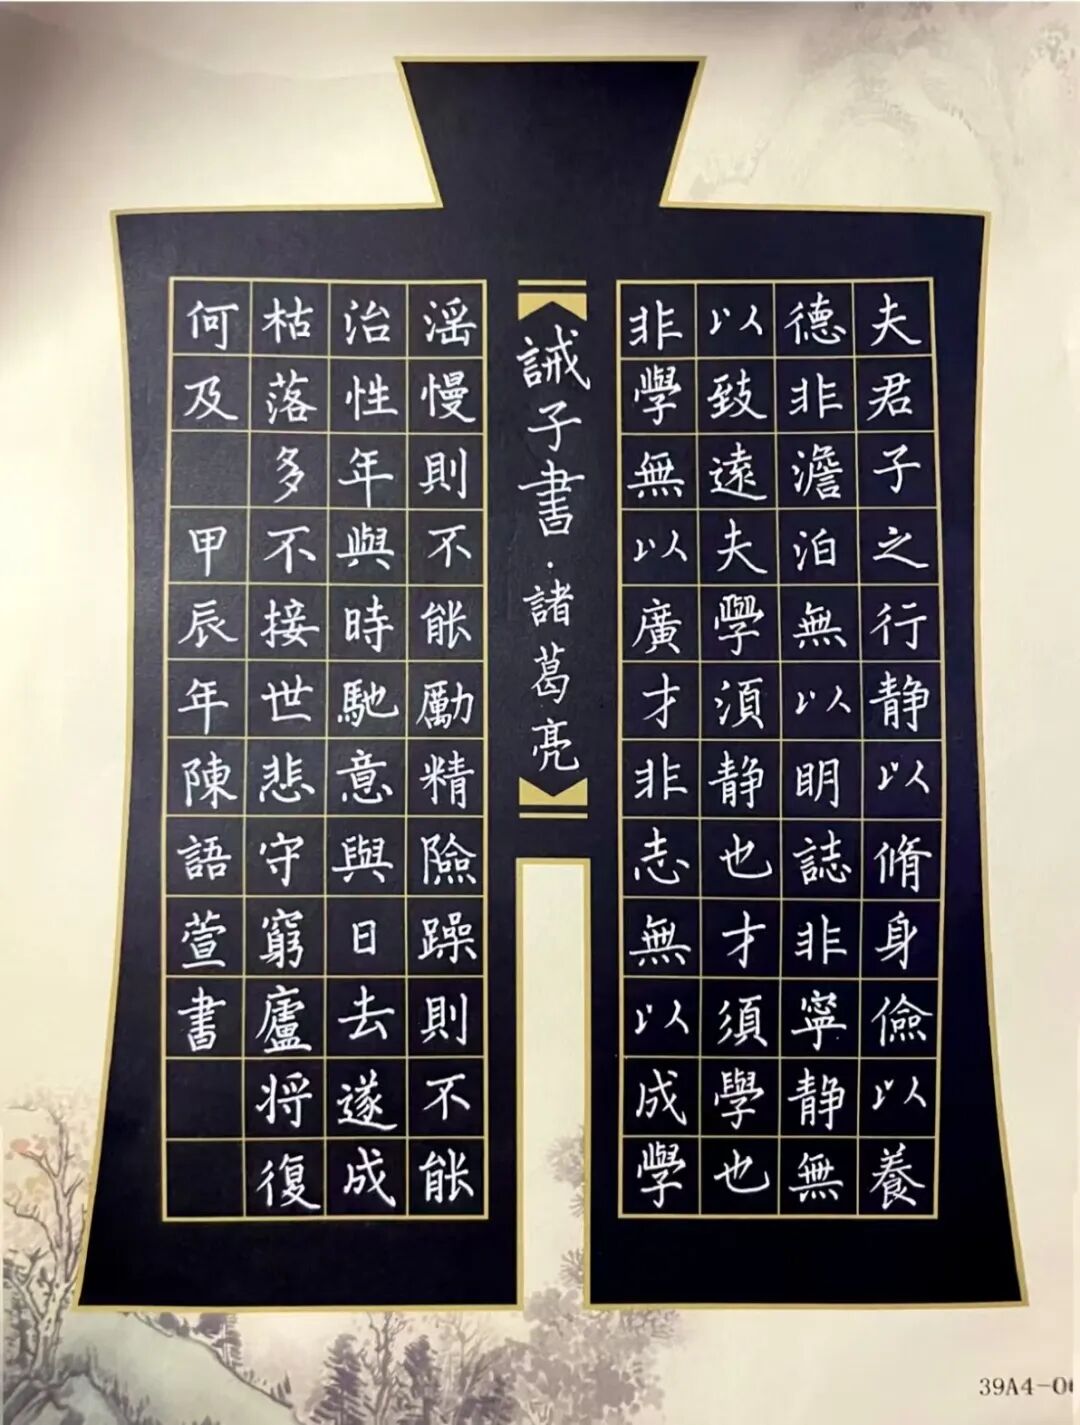 誡子書·諸葛亮
夫君子之行静以脩身儉以養
德非澹泊無以明誌非寧静無
以致遠夫學湏静也才須學也
非學無以廣才非志無以成學
滛慢則不能勵精險躁則不能
治性年與時馳意與日去遂成
枯落多不接世悲守窮廬将復
何及 甲辰年陳語萱書